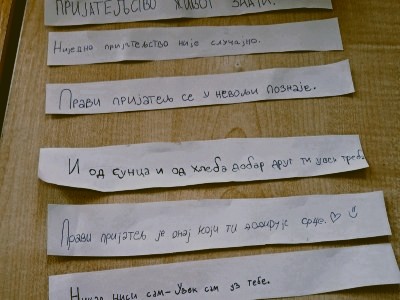 ПРИЈАТЕЉСТВО ЖИВОТ ЗНАЧИ.
Ниједно пријатељство није случајно.
Прави пријатељ се у невољи познаје.
И од сунца и од хлеба добар друг ти увек треба.
Прави пријатељ је онај који ти додирује срце. ♡ ☺
Никад ниси сам- Увек сам уз тебе.